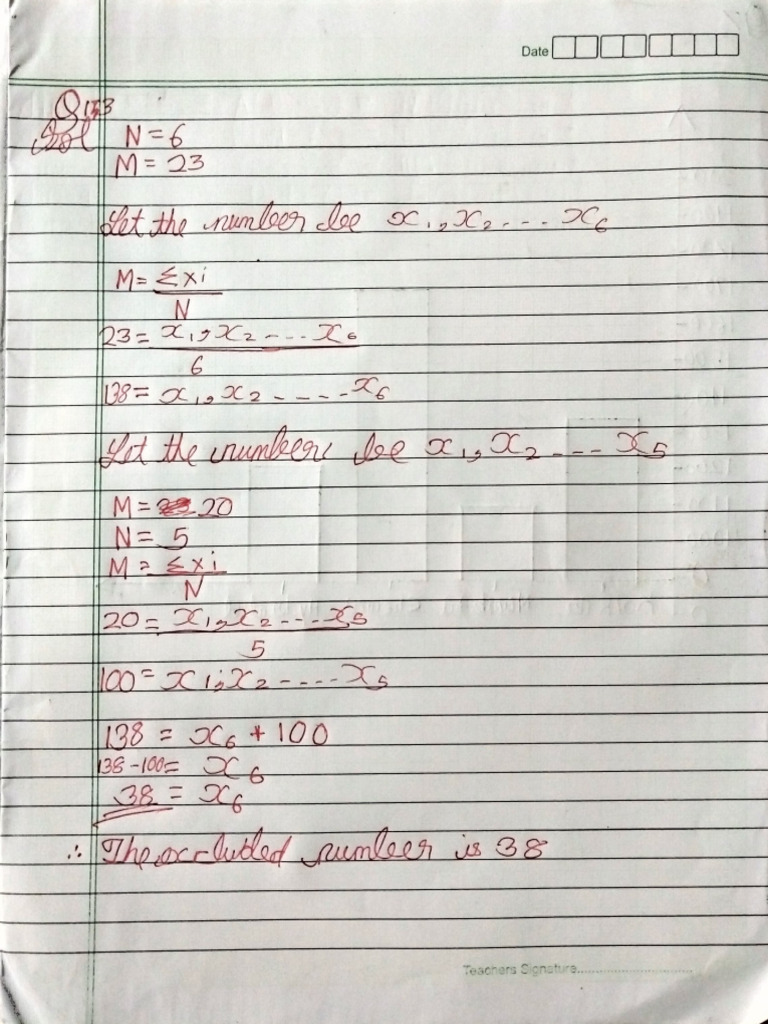 Date
Q13
Sol N = 6
M = 23
Let the number be x₁, x₂ --- x₆
M = Σxi
N
23 = x₁, x₂ ---- x₆
6
138 = x₁, x₂ ----- x₆
Let the number be x₁, x₂ ---- x₅
M = 20
N = 5
M = Σxi
N
20 = x₁, x₂ ---- x₅
5
100 = x₁, x₂ ----- x₅
138 = x₆ + 100
138 - 100 = x₆
38 = x₆
∴ The excluded number is 38
Teachers Signature